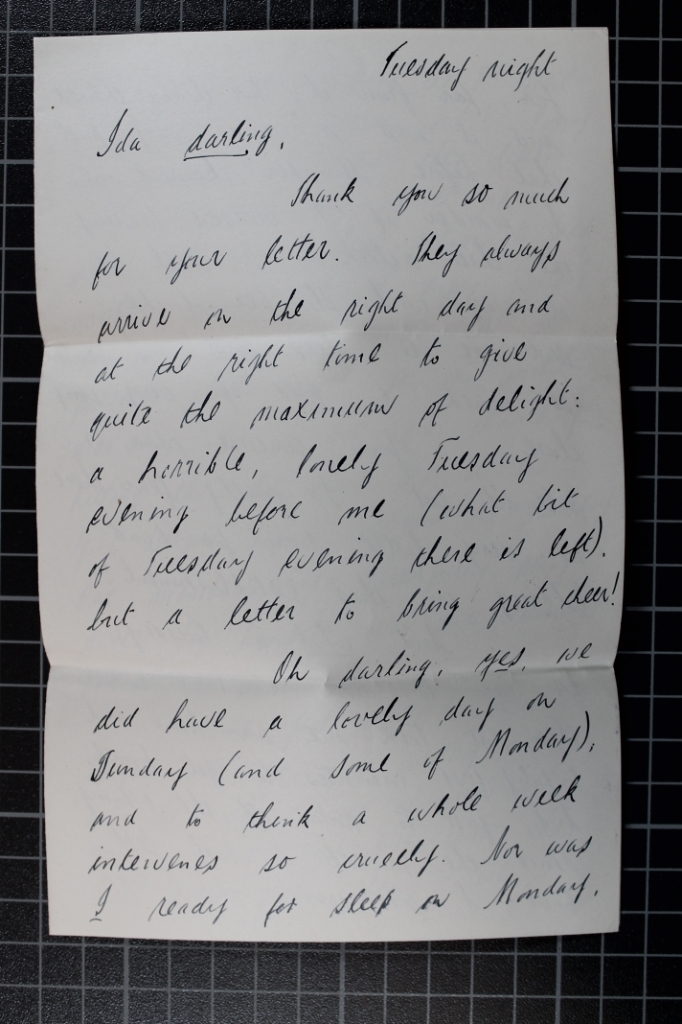 Tuesday night
Ida darling,
Thank you so much
for your letter. They always
arrive on the right day and
at the right time to give
quite the maximum of delight:
a horrible, lonely Tuesday
evening before me (what bit
of Tuesday evening there is left),
but a letter to bring great cheer!
Oh darling, yes, we
did have a lovely day on
Sunday (and some of Monday),
and to think a whole week
intervenes so cruelly. Nor was
I ready for sleep on Monday,